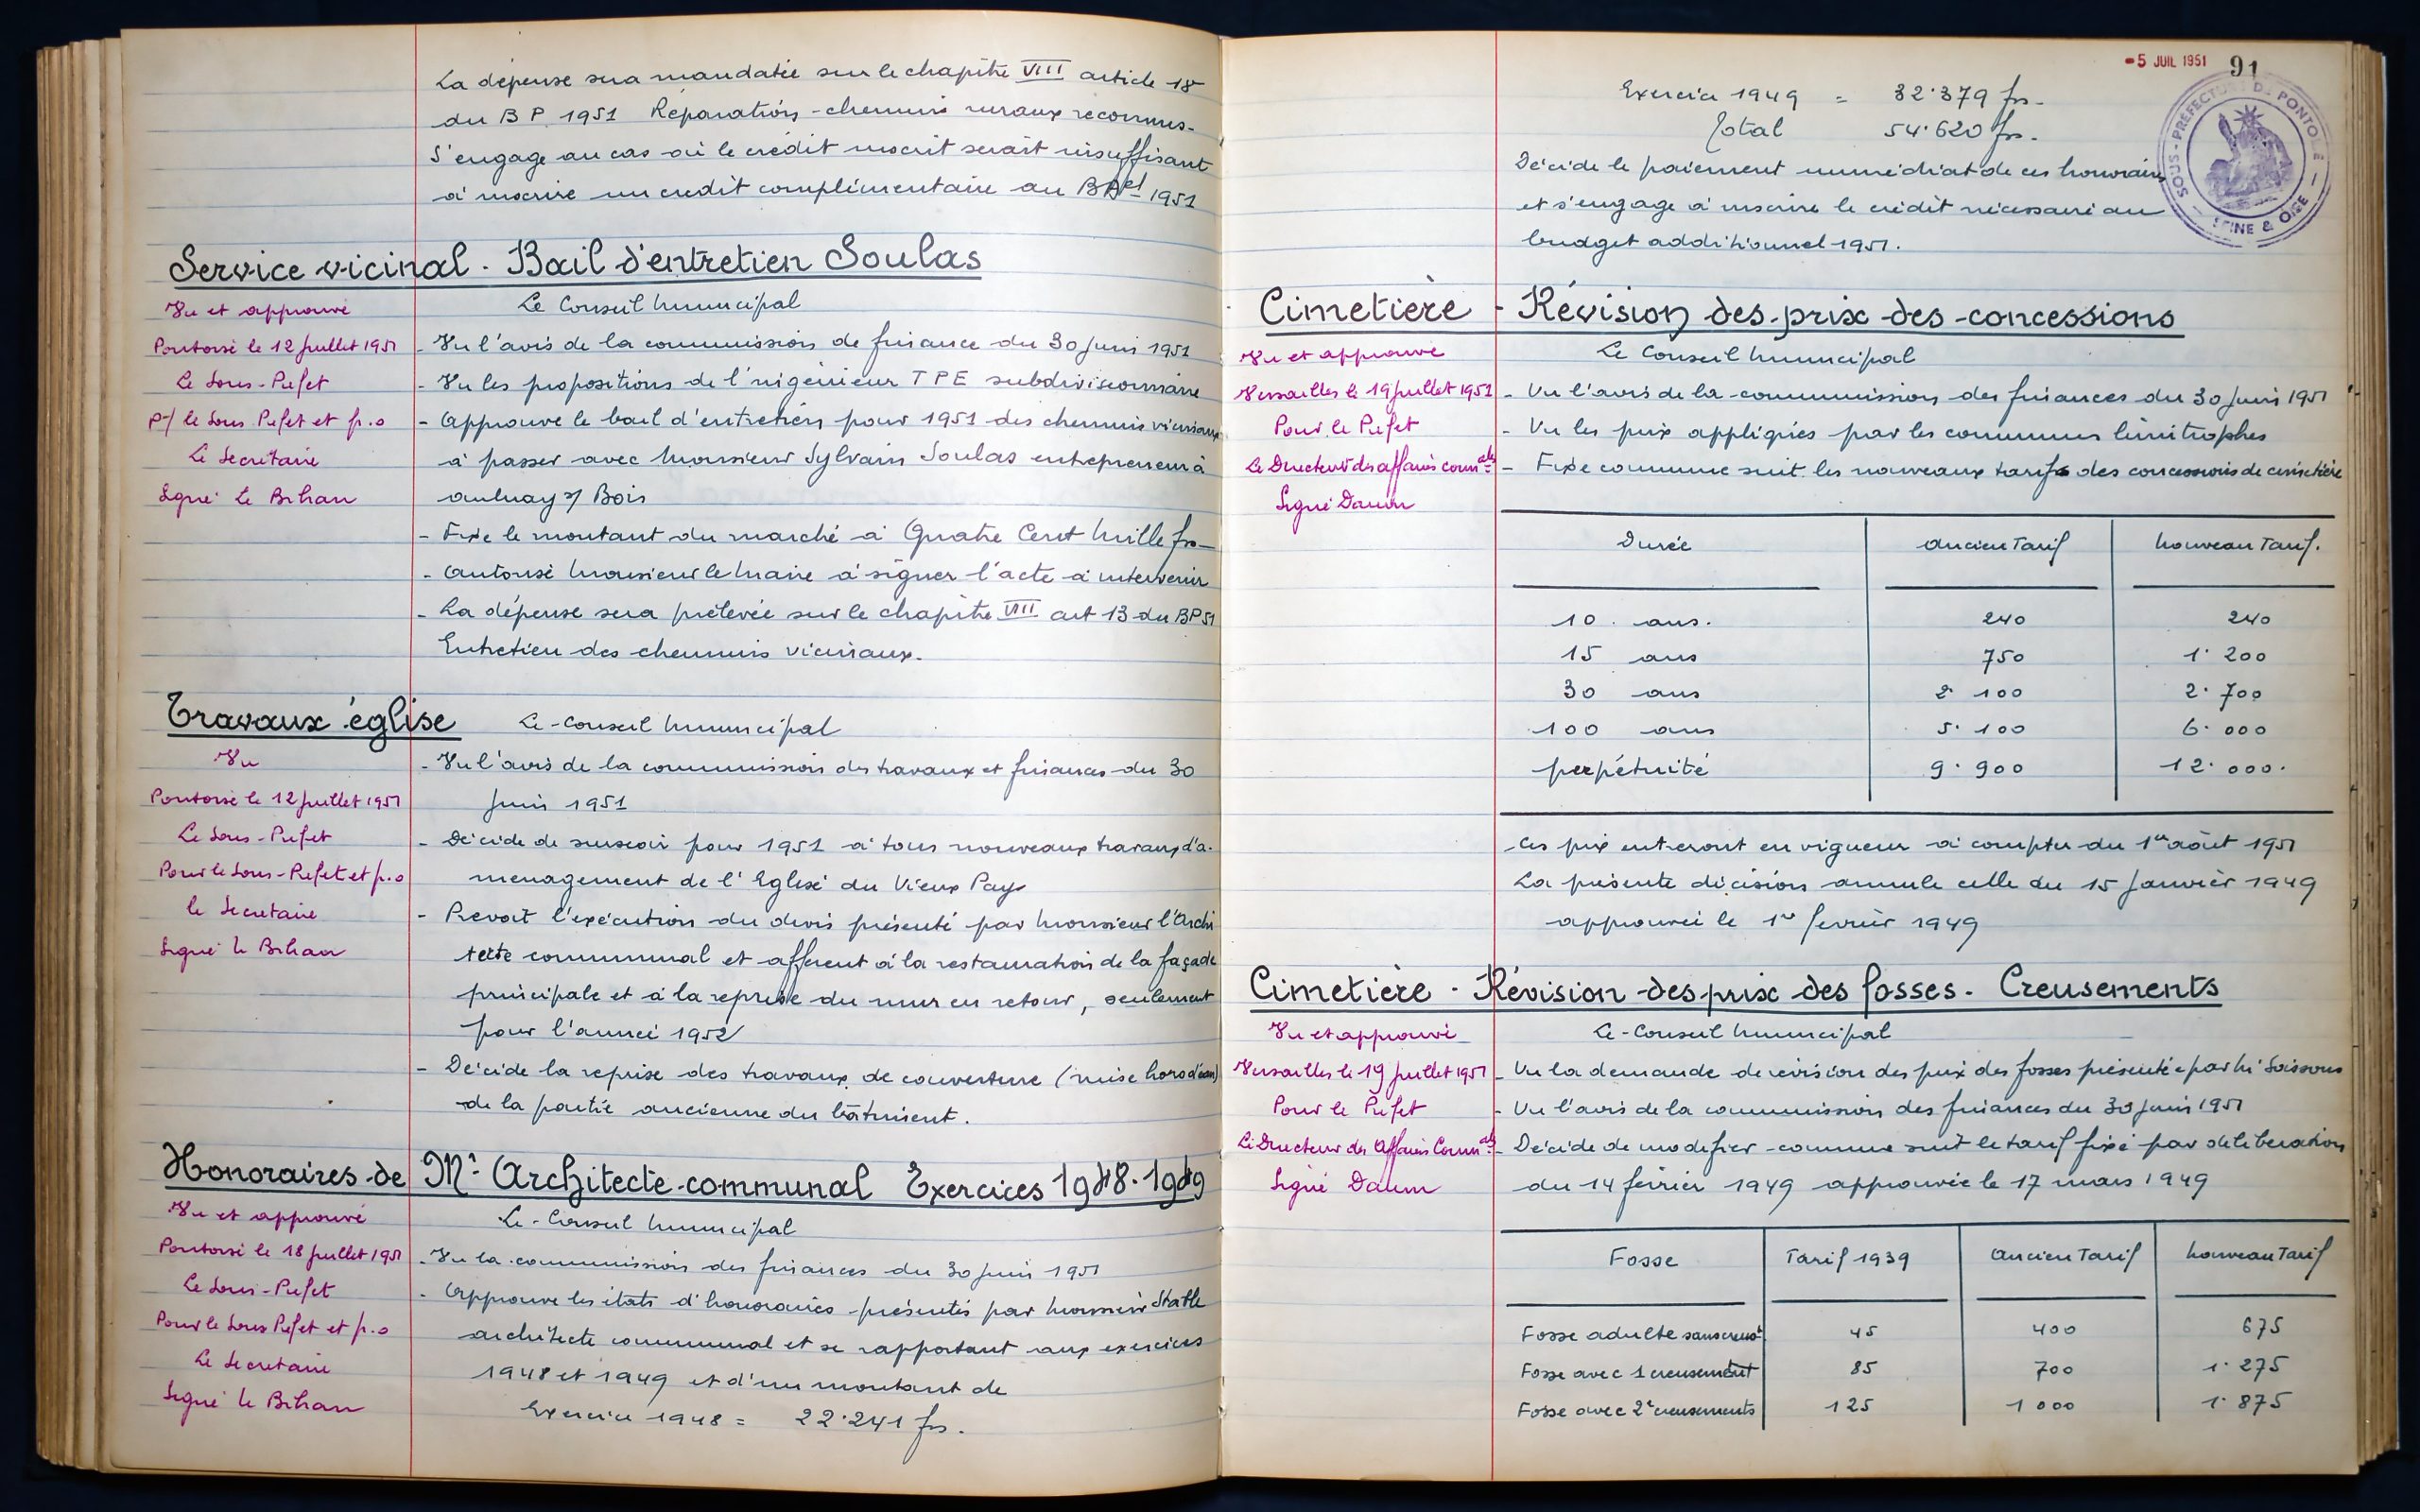 La dépense sera mandatée sur le chapitre VIII article 18
du B P. 1951 Réparation - chemins ruraux reconnus.
S'engage au cas où le crédit inscrit serait insuffisant
à inscrire un credit complémentaire au BAel 1951
Service vicinal. Bail d'entretien Soulas
Vu et approuvé
Pontoise le 12 Juillet 1951
Le Sous-Préfet
P/ le Sous Préfet et p.o
Le Secrétaire
Signé Le Bihan
Le Conseil Municipal
- Vu l'avis de la commission de finance du 30 Juin 1951
- Vu les propositions de l'ingénieur T P E subdivisionnaire
- Approuve le bail d'entretien pour 1951 des chemins vicinaux
à passer avec Monsieur Sylvain Soulas entrepreneur à
aulnay s/ Bois
- Fixe le montant du marché à Quatre Cent Mille frs
- Autorise Monsieur le Maire à signer l'acte à intervenir
- La dépense sera prélevée sur le chapitre VIII art 13 du BP 51
Entretien des chemins vicinaux.
Travaux église
Vu
Pontoise le 12 Juillet 1951
Le Sous-Préfet
Pour le Sous-Préfet et p.o
le Secretaire
Signé le Bihan
Le Conseil Municipal
- Vu l'avis de la commission des travaux et finances du 30
Juin 1951
- Décide de surseoir pour 1951 à tous nouveaux travaux d'a-
menagement de l'Eglise du Vieux Pays
- Prevoit l'exécution du devis présenté par Monsieur l'Archi
tecte communal et afferent à la restauration de la façade
principale et à la reprise du mur en retour, seulement
pour l'année 1952
- Décide la reprise des travaux de couverture (mise hors d'eau)
de la partie ancienne du bâtiment.
Honoraires de Mr Architecte communal Exercices 1948.1949
Vu et approuvé
Pontoise le 18 Juillet 1951
Le Sous-Préfet
Pour le Sous Préfet et p.o
Le Secretaire
Signé le Bihan
Le Conseil Municipal
- Vu la commission des finances du 30 Juin 1951
- Approuve les états d'honoraires présentés par Monsieur
architecte communal et se rapportant aux exercices
1948 et 1949 et d'un montant de
Exercice 1948 = 22.241 frs.
- 5 JUIL 1951 91
SOUS-PRÉFECTURE DE PONTOISE - SEINE & OISE -
Exercice 1949 = 32.379 frs.
Total 54.620 frs.
Décide le paiement immédiat de ces honoraires
et s'engage à inscrire le crédit nécessaire au
budget additionnel 1951.
Cimetière - Révision des prix des concessions
Vu et approuvé
Versailles le 19 Juillet 1951
Pour le Préfet
Le Directeur des affaires comales
Signé Daum
Le Conseil Municipal
- Vu l'avis de la commission des finances du 30 Juin 1951
- Vu les prix appliqués par les communes limitrophes
- Fixe comme suit les nouveaux tarifs des concessions de cimetière
Durée Ancien Tarif Nouveau Tarif.
10 ans. 240 240
15 ans 750 1.200
30 ans 2.100 2.700
100 ans 5.100 6.000
perpétuité 9.900 12.000.
Ces prix entreront en vigueur à compter du 1er août 1951
La présente décision annule celle du 15 Janvier 1949
approuvée le 1er février 1949
Cimetière - Révision des prix des fosses. Creusements
Vu et approuvé
Versailles le 19 Juillet 1951
Pour le Préfet
Le Directeur des Affaires Comales
Signé Daum
Le Conseil Municipal
- Vu la demande de révision des prix des fosses présentée par Mr Soissons
- Vu l'avis de la commission des finances du 30 Juin 1951
- Décide de modifier comme suit le tarif fixé par deliberation
du 14 février 1949 approuvée le 17 mars 1949
Fosse Tarif 1939 Ancien Tarif Nouveau Tarif
Fosse adulte sans creust 45 400 675
Fosse avec 1 creusement 85 700 1.275
Fosse avec 2 creusements 125 1000 1.875